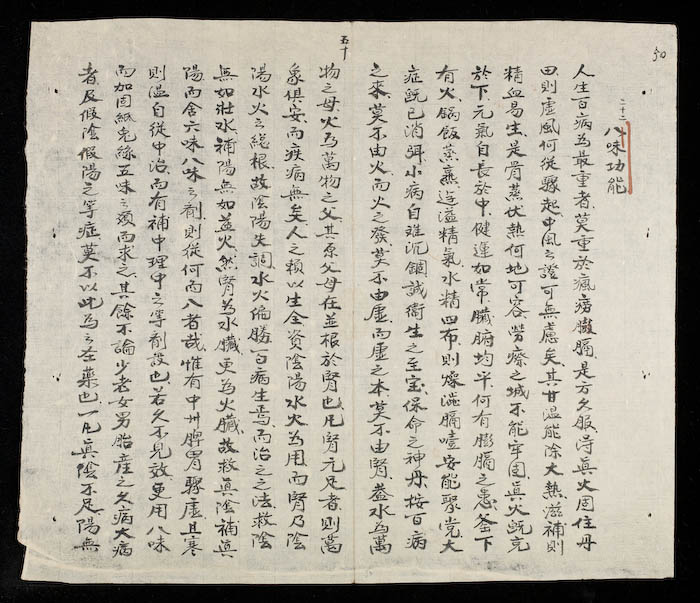 50
二十二
八味功能
人生百病為最重者莫重於瘋癆臌膈是方久服得眞火固住丹
田則虛風何從驟起中風之證可無慮矣其甘溫能除大熱滋補則
精血易生是骨蒸伏熱何地可容勞瘵之城不能牢固眞火旣克
於下元氣自長於中健運如常臟腑均平何有膨膈之患釜下
有火鍋飯蒸熏遊溢精氣水精四布則燥澁膈噎安能聚党大
症旣已消弭小病自难沉錮誠衛生之至宝保命之神丹按百病
之來莫不由火而火之發莫不由虛而虛之本莫不由腎葢水為萬
物之母火為萬物之父其原父母在並根於腎也凡腎元足者則萬
象俱安而疾病無矣人之賴以生全資陰陽水火為用而腎乃陰
陽水火之総根故陰陽失調水火偏勝百病生焉而治之之法救陰
無如壯水補陽無如益火然腎為水臟更為火臟故救眞陰補眞
陽而舍六味八味之劑則從何而入者哉惟有中州脾胃驟虛且寒
則溫自從中治而有補中理中之等劑設也若久不見效更用八味
而加固紙兎絲五味之類而求之其餘不論少老女男胎産之久病大病
者及假陰假陽之等症莫不以此為之圣藥也一凡眞陰不足陽無
五十